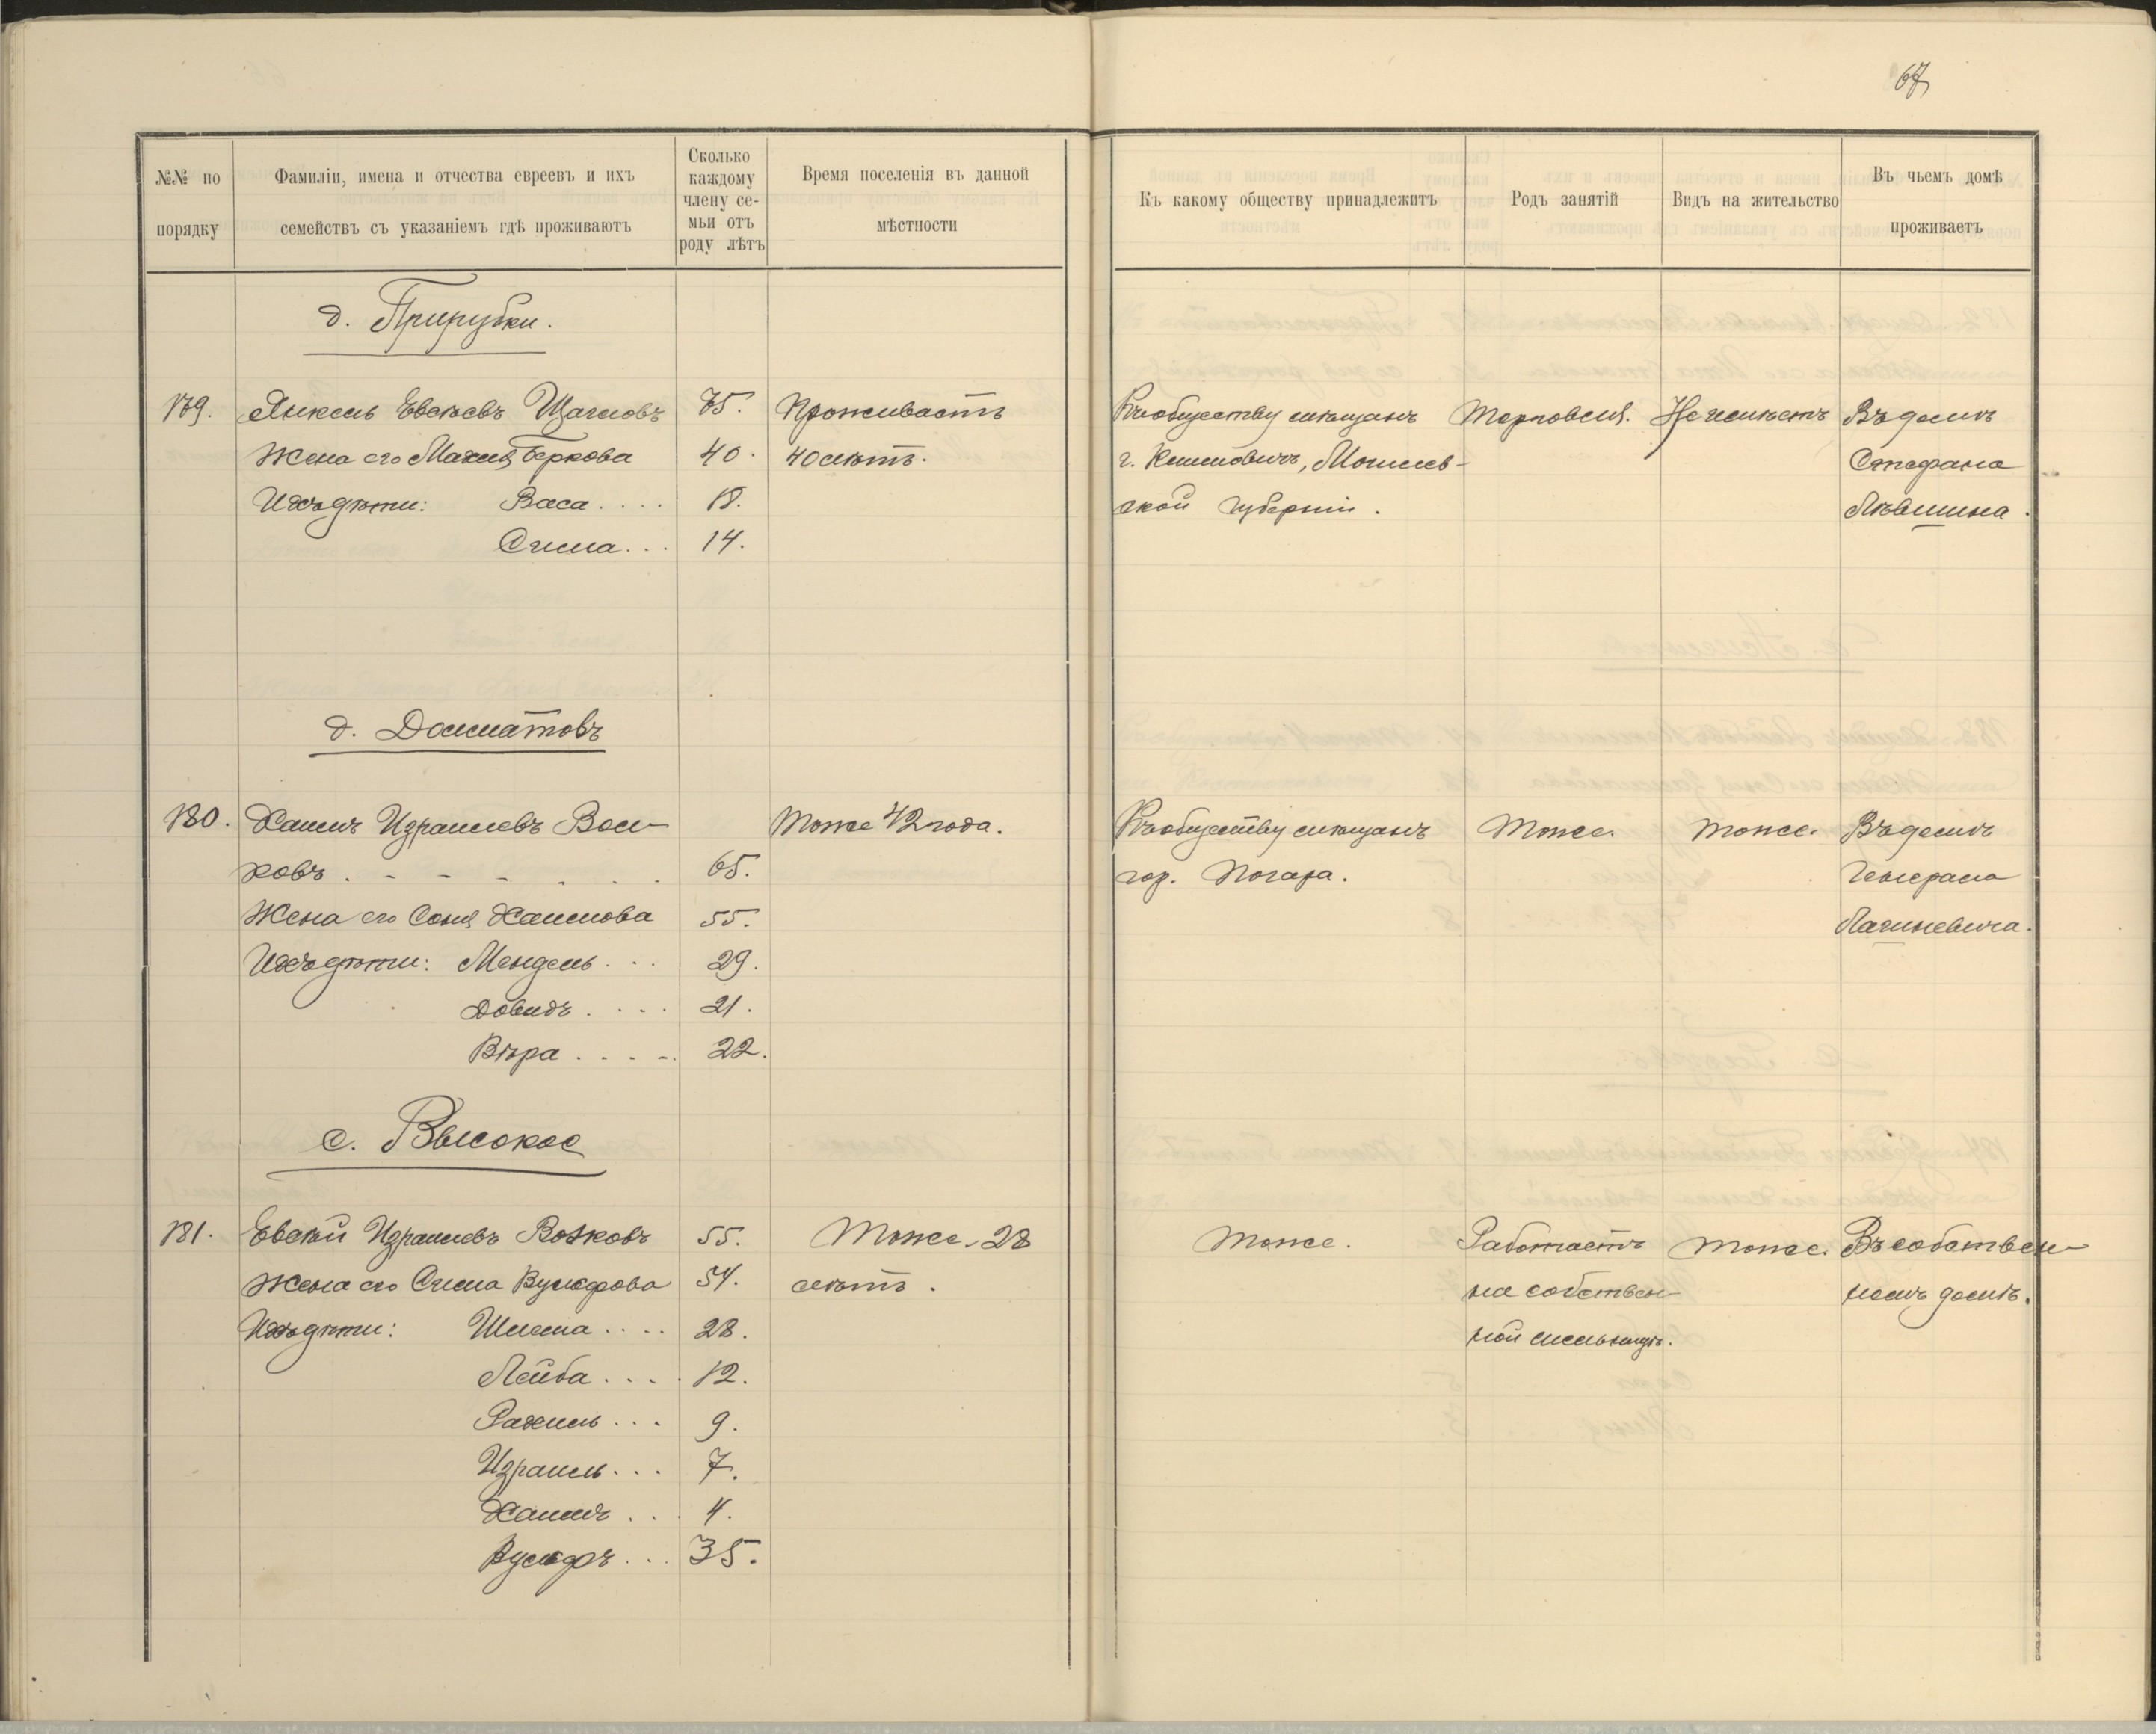 67
№№ по порядку
Фамиліи, имена и отчества евреевъ и ихъ семействъ съ указаніемъ гдѣ проживаютъ
Сколько каждому члену семьи отъ роду лѣтъ
Время поселенія въ данной мѣстности
Къ какому обществу принадлежитъ
Родъ занятій
Видъ на жительство
Въ чьемъ домѣ проживаетъ
д. Прирубки.
179. Янкель Евсѣевъ 75. Проживаетъ Къ обществу мѣщанъ Торговля. Не имѣетъ Въ домѣ
Жена его Беркова 40. 40 лѣтъ. г. Климовичъ, Могилев- Стефана
Ихъ дѣти: Васа . . . . 18. ской губерніи. Лѣвшина.
Сима . . . 14.
д. Долматовъ
180. Хаимъ Израилевъ Вол- Тоже 42 года. Къ обществу мѣщанъ Тоже. Тоже. Въ домѣ
ковъ . - - - . . . 65. гор. Погара. Генерала
Жена его Соня Хаимова 55.
Ихъ дѣти: Мендель . . . 29.
Довидъ . . . . 21.
Вѣра . . . . 22.
с. Высокое
181. Евсѣй Израилевъ Волковъ 55. Тоже 28 Тоже. Работаетъ Тоже. Въ собствен-
Жена его Сима Вульфова 54. лѣтъ. на собствен- номъ домѣ.
Ихъ дѣти: Шлема . . . . 28. ной мельницѣ.
Лейба . . . . 12.
Рахиль . . . 9.
Израиль . . . 7.
Хаимъ . . . 4.
Вульфъ . . . 35.